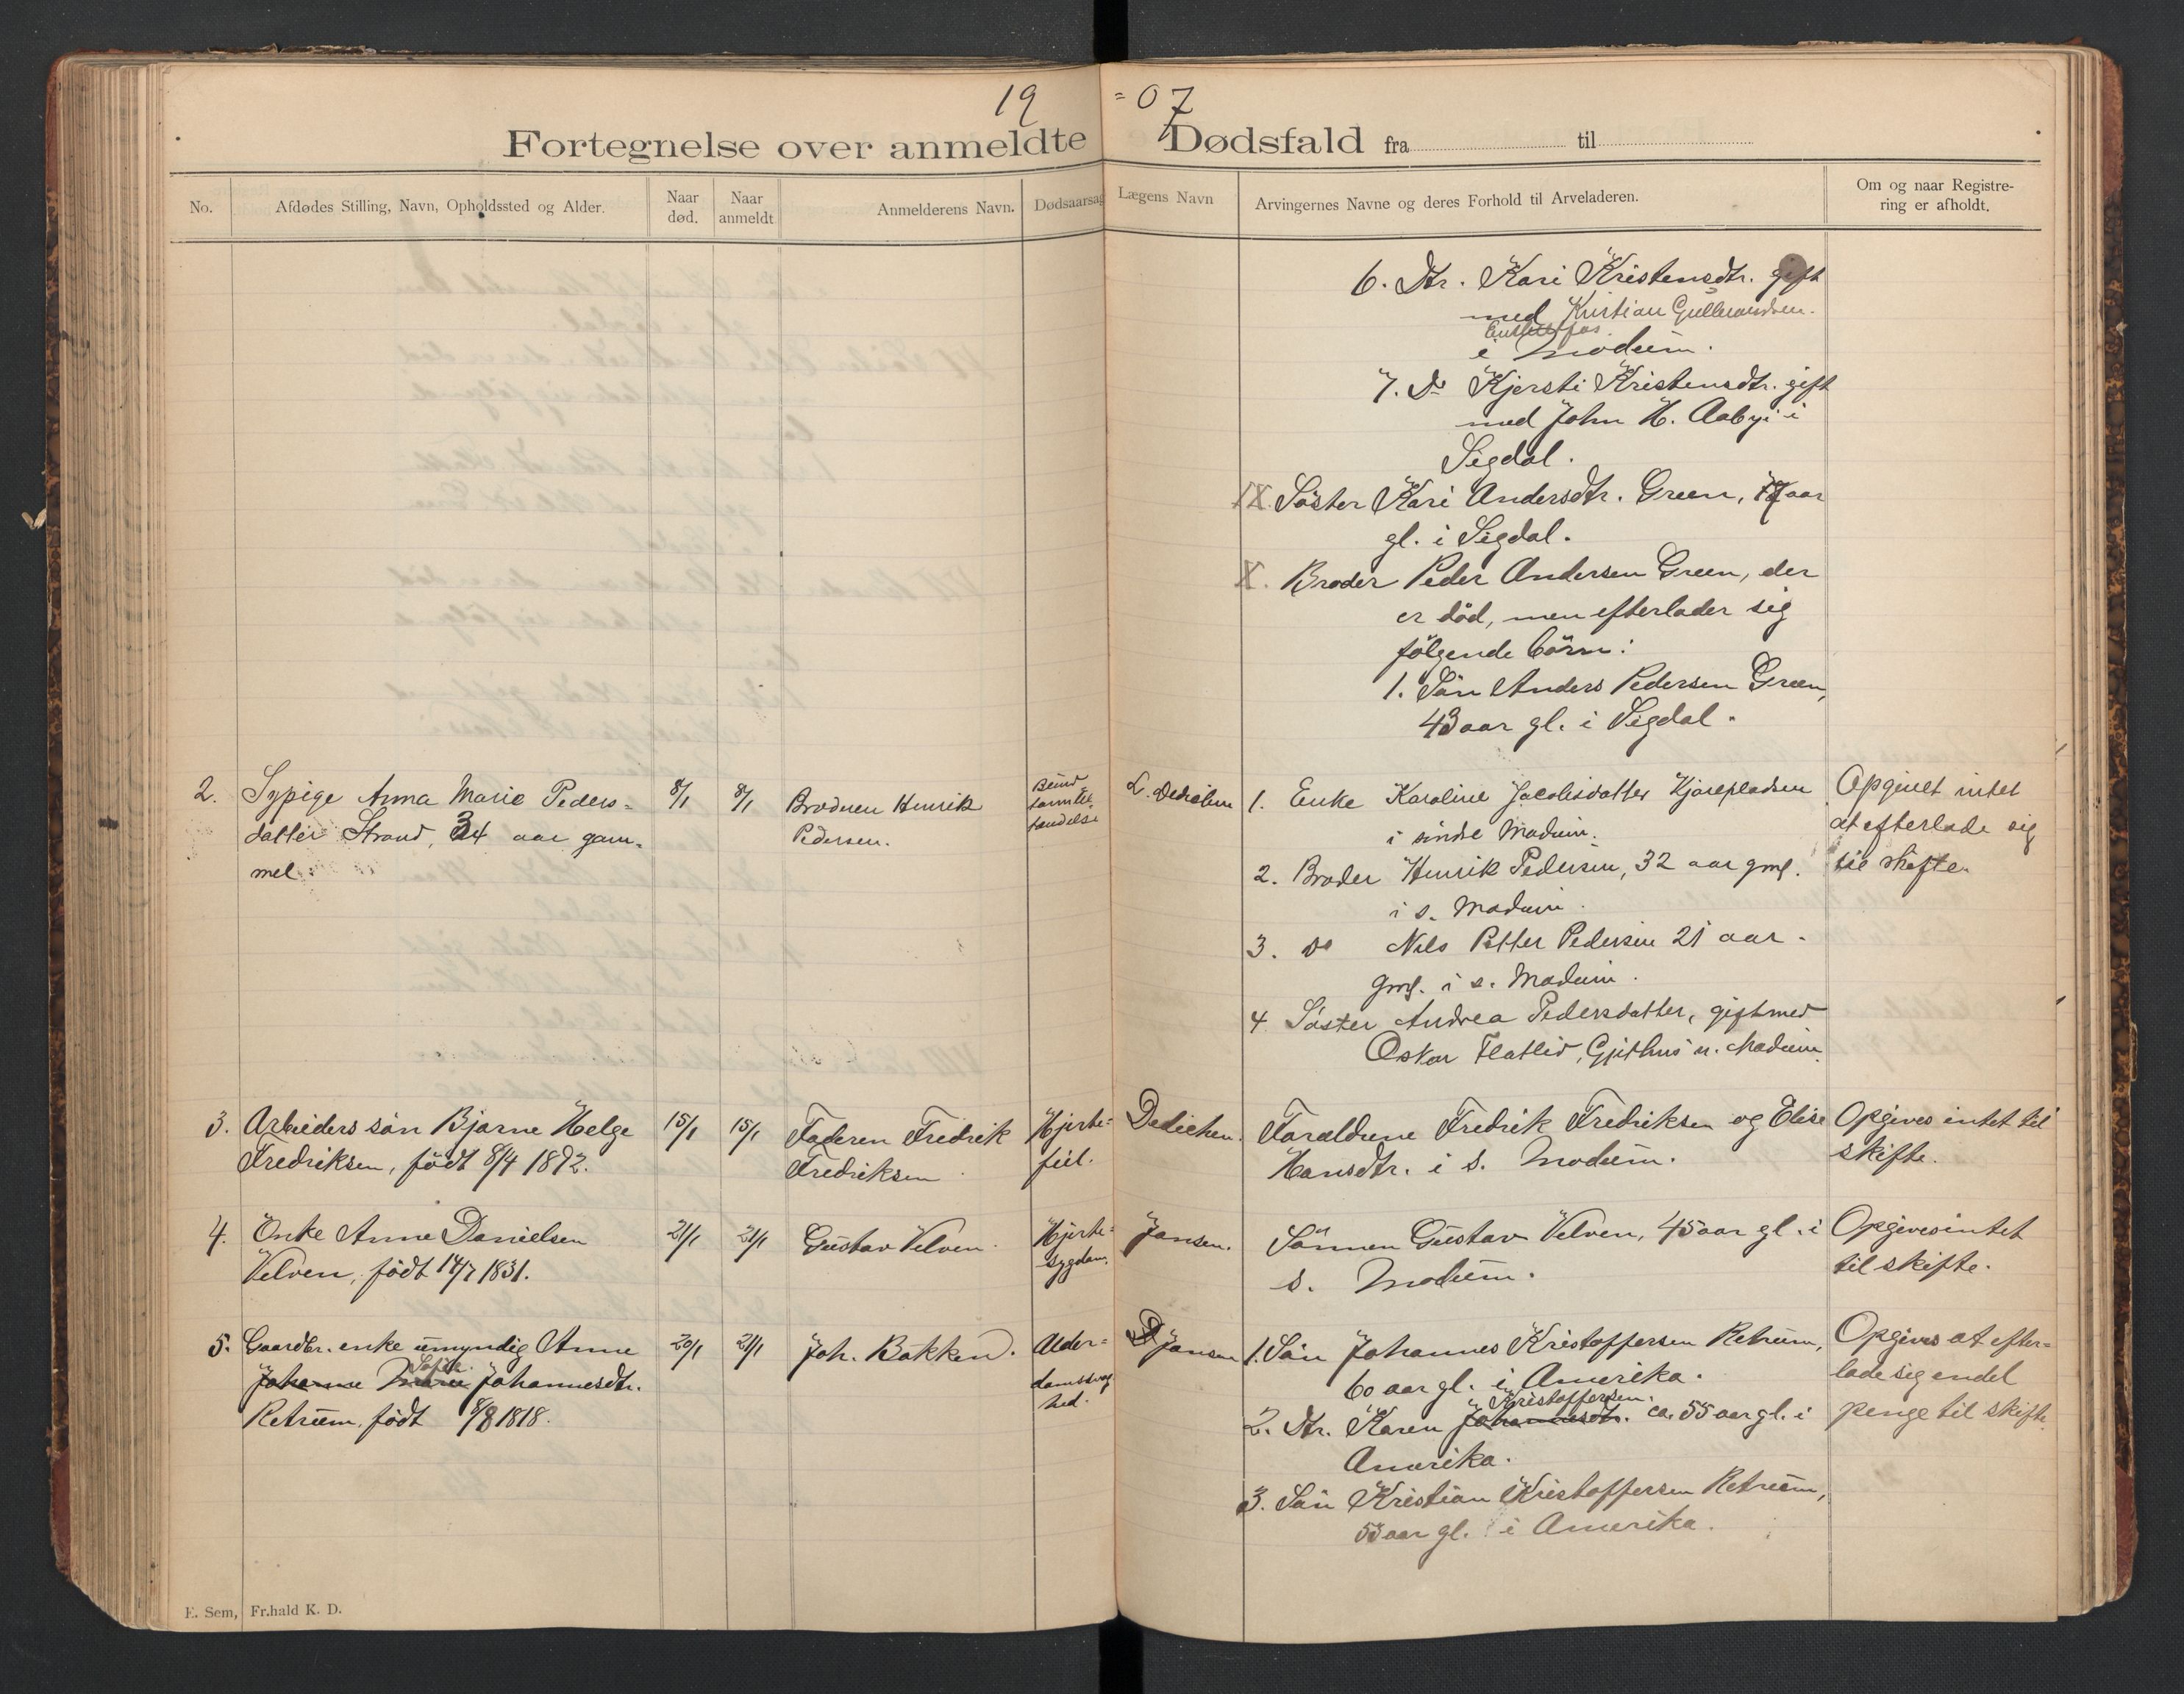 19 = 07
Fortegnelse over anmeldte Dødsfald fra til
No. Afdødes Stilling, Navn, Opholdssted og Alder. Naar død. Naar anmeldt Anmelderens Navn. Dødsaarsag Lægens Navn Arvingernes Navne og deres Forhold til Arveladeren. Om og naar Registrering er afholdt.
6. Dtr. Kari Kristensdtr. gift
med Kristian Gulbrandsen
i Modum.
7. Do Kjersti Kristensdtr. gift
med John H. Aaby i
Sigdal.
IX. Söster Kari Andersdtr. Green, aar
gl. i Sigdal.
X. Broder Peder Andersen Green, der
er död, men efterlader sig
fölgende börn:
1. Sön Anders Pedersen Green,
43 aar gl. i Sigdal.
2. Sypige Anna Marie Peders=
datter Strand, 34 aar gam-
mel
8/1
8/1
Broderen Henrik
Pedersen.
1. Enke Karoline Jacobsdatter
i söndre Modum.
2. Broder Henrik Pedersen, 32 aar gml.
i s. Modum.
3. do Nils Petter Pedersen 21 aar
gml. i s. Modum.
4 Söster Andrea Pedersdatter, gift med
Oskar Flatlid, Gjethus n. Modum.
Opgivet intet
at efterlade sig
til skifte.
3. Arbeiders sön Bjarne Helge
Fredriksen, födt 8/4 1892.
15/1
15/1
Faderen Fredrik
Fredriksen
Hjerte=
feil.
Dedichen.
Forældrene Fredrik Fredriksen og Elise
Hansdtr. i s. Modum.
Opgives intet til
skifte.
4. Enke Anne Danielsen
Velven, födt 14/7 1831.
21/1
21/1
Gustav Velven.
Hjerte=
sygdom.
Jansen.
Sönnen Gustav Velven, 45 aar gl. i
s. Modum.
Opgives intet
til skifte.
5. Gaardbr. enke umyndig Anne
Johanne Marie Sofie Johannesdtr.
Retrum, födt 8/8 1818.
20/1
21/1
Joh. Bakken.
Alder=
domssvag
hed.
Jansen
1. Sön Johannes Kristoffersen Retrum,
60 aar gl. i Amerika.
Kristoffersen.
2. Dtr. Karen Johannesdtr. ca. 55 aar gl. i
Amerika.
3. Sön Kristian Kristoffersen Retrum,
53 aar gl. i Amerika.
Opgives at efter=
lade sig endel
penge til skifte
E. Sem, Fr.hald K. D.